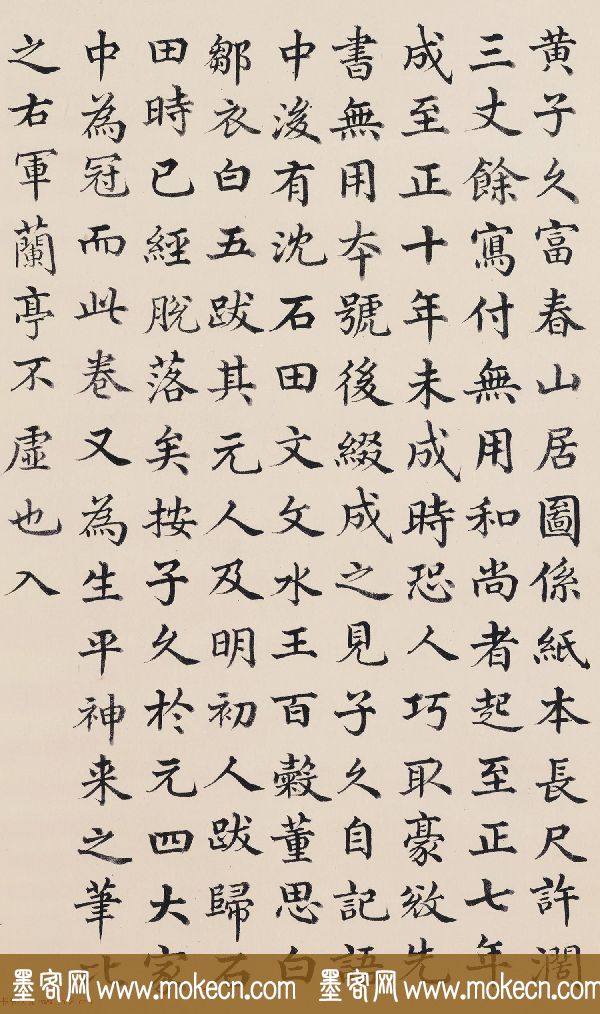 黄子久富春山居圖係紙本長尺許濶
三丈餘寫付無用和尚者起至正七年
成至正十年未成時恐人巧取豪敚先
書無用夲號後綴成之見子久自記語
中浚有沈石田文文水王百穀董思白
鄒衣白五跋其元人及明初人跋歸石
田時已經脫落矣按子久於元四大家
中為冠而此卷又為生平神来之筆比
之右軍蘭亭不虛也入
墨客网 www.mokecn.com 墨客网 www.mokecn.com